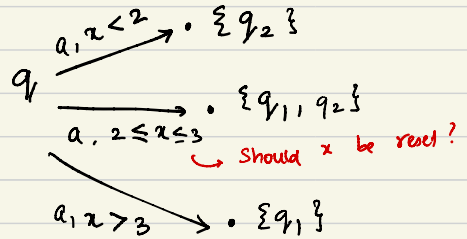 a, x < 2 · {q₂}
q
· {q₁, q₂}
a, 2 ≤ x ≤ 3
Should x be reset?
a, x > 3 · {q₁}